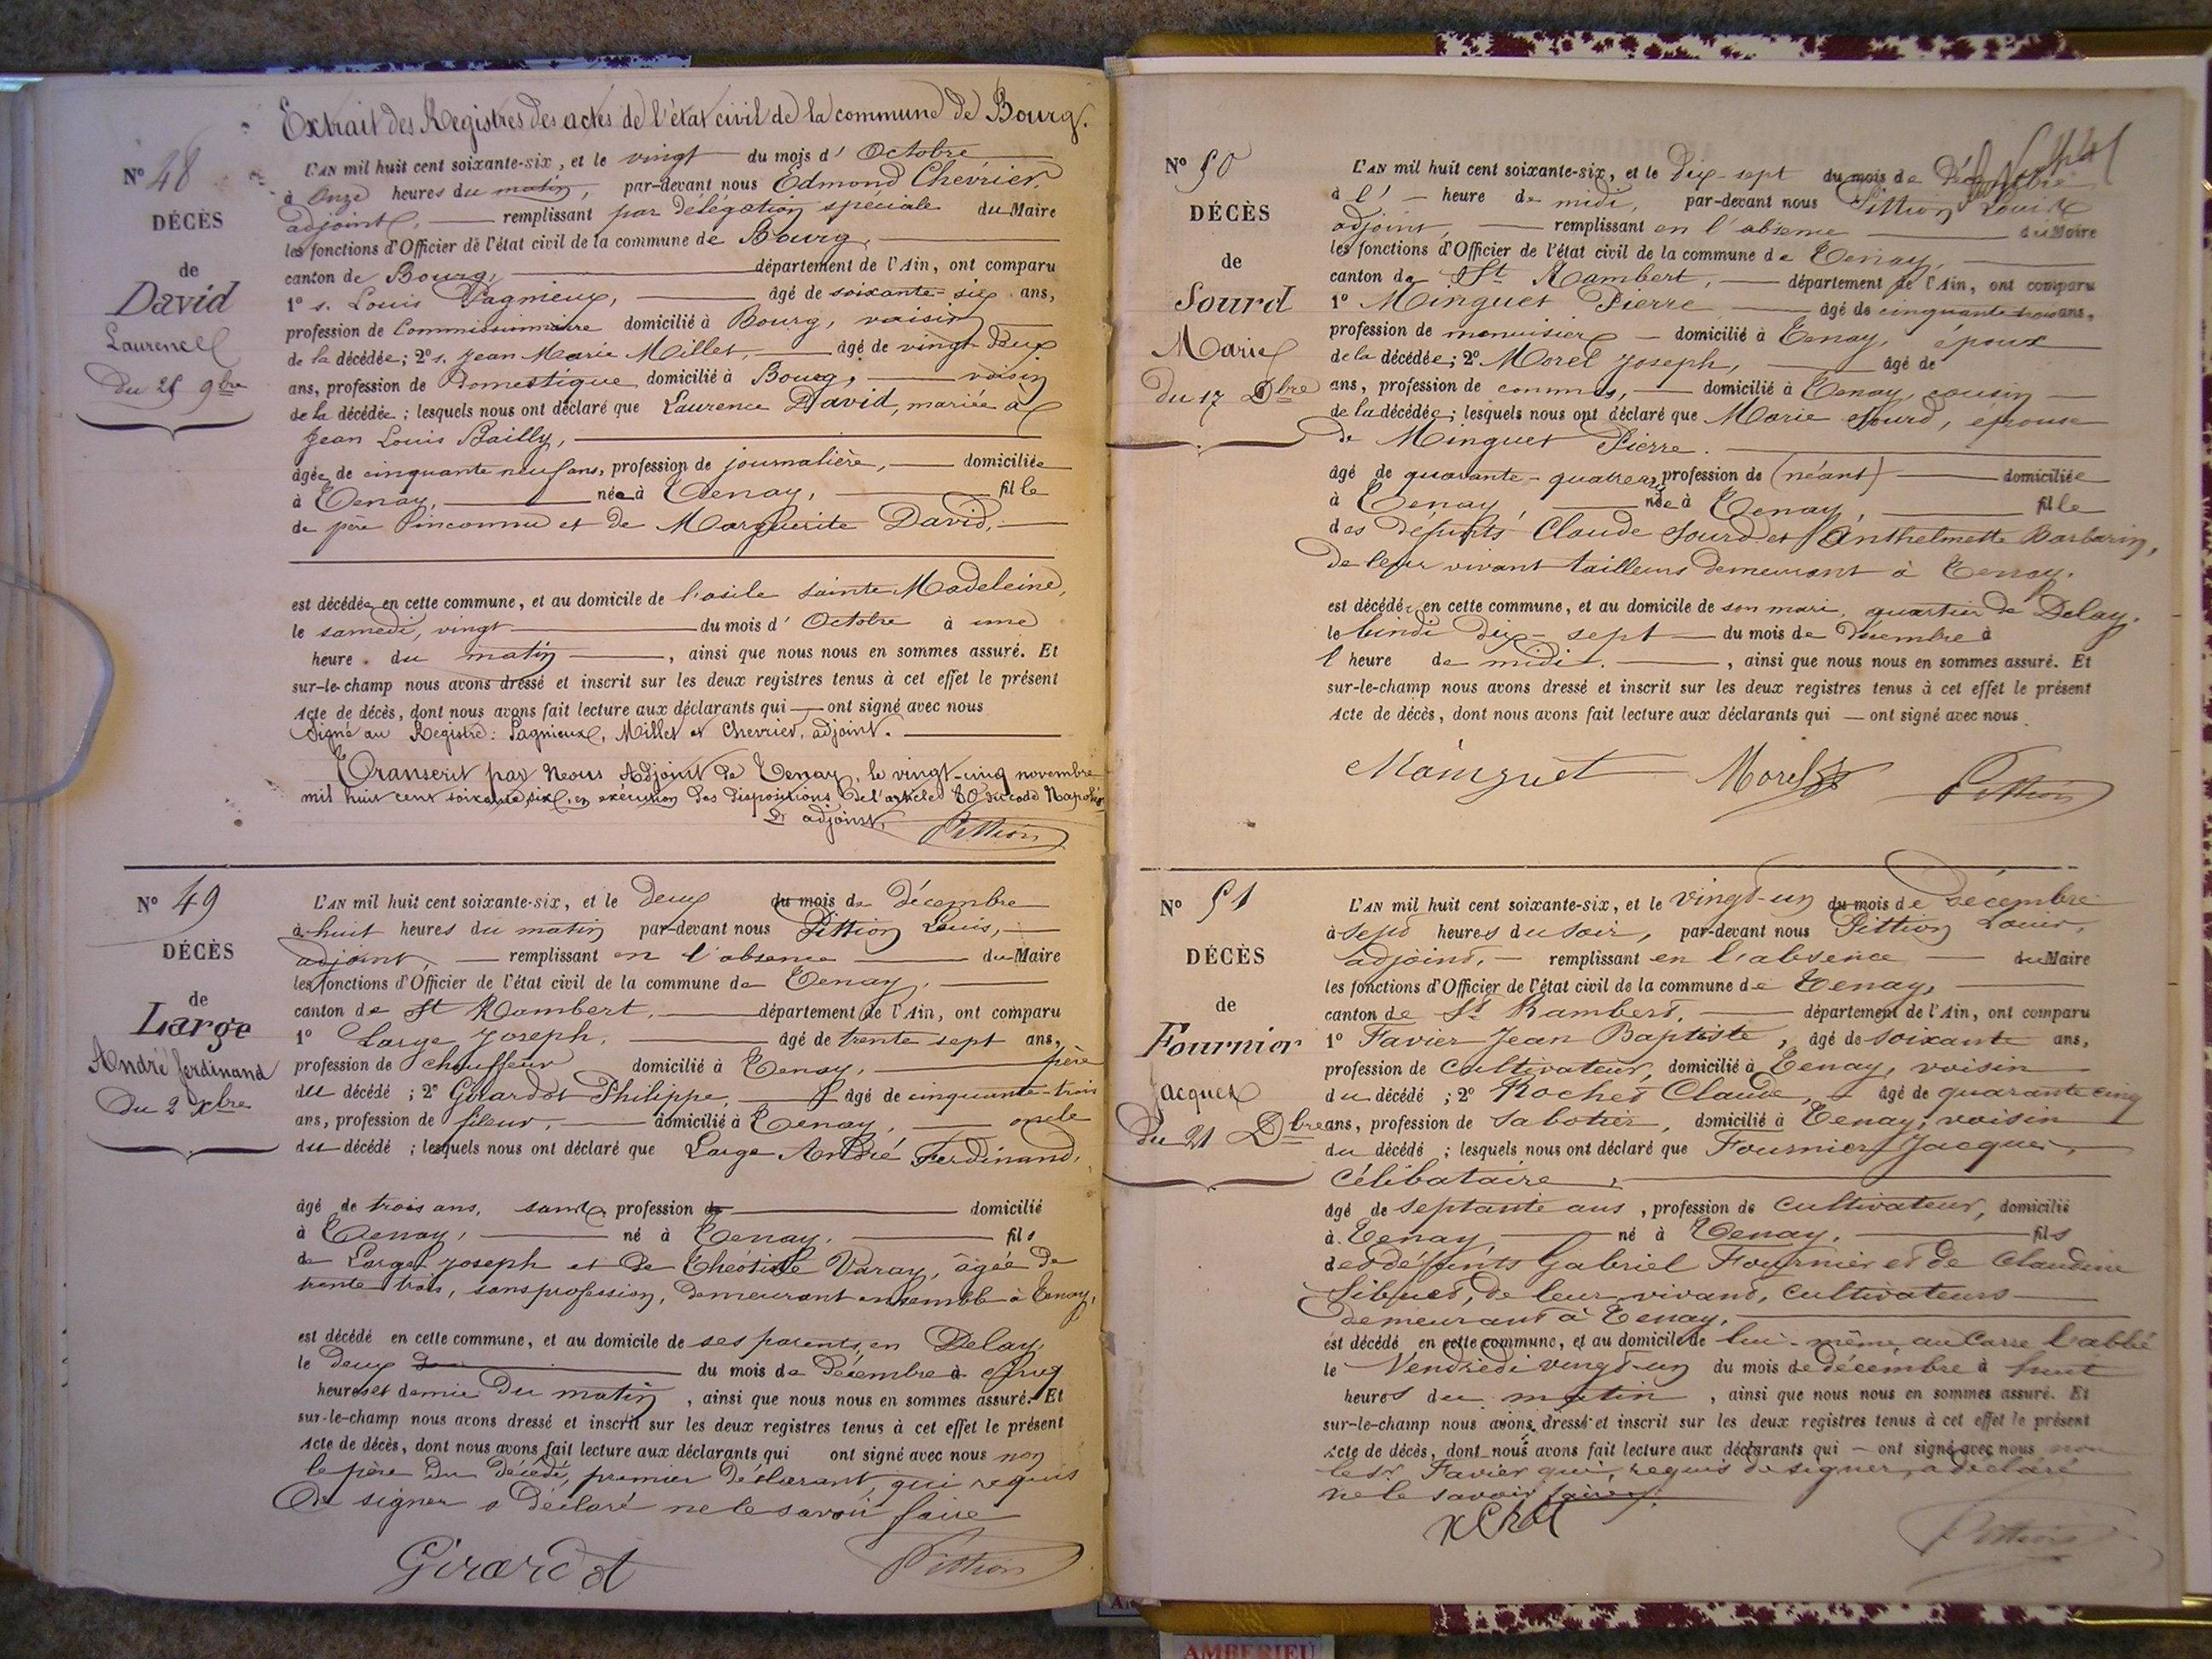 Extrait des Registres des actes de l'état civil de la commune de Bourg.
N° 48
DÉCÈS
de
David
Laurence
Du 25 9bre
L'AN mil huit cent soixante-six, et le vingt du mois d' Octobre
à Onze heures du matin, par-devant nous Edmond Chevrier,
adjoint, remplissant par délégation spéciale du Maire
les fonctions d'Officier de l'état civil de la commune de Bourg,
canton de Bourg, département de l'Ain, ont comparu
1° s. Louis Pagnieux, âgé de soixante-six ans,
profession de Commissionnaire domicilié à Bourg, voisin
de la décédée; 2° s. Jean Marie Millet, âgé de vingt deux
ans, profession de Domestique domicilié à Bourg, voisin
de la décédée; lesquels nous ont déclaré que Laurence David, mariée à
Jean Louis Bailly,
âgée de cinquante neuf ans, profession de journalière, domiciliée
à Tenay, née à Tenay, fille
de père inconnu et de Marguerite David,
est décédée en cette commune, et au domicile de l'asile Sainte Madeleine,
le samedi, vingt du mois d' Octobre à une
heure du matin, ainsi que nous nous en sommes assuré. Et
sur-le-champ nous avons dressé et inscrit sur les deux registres tenus à cet effet le présent
Acte de décès, dont nous avons fait lecture aux déclarants qui — ont signé avec nous
Signé au Registre: Pagnieux, Millet et Chevrier, adjoint.
Transcrit par Nous Adjoint de Tenay, le vingt-cinq novembre
mil huit cent soixante six, en exécution des dispositions de l'article 80 du code Napoléon
adjoint, Pittion
N° 49
DÉCÈS
de
Large
André ferdinand
Du 2 Xbre
L'AN mil huit cent soixante-six, et le deux du mois de décembre
à huit heures du matin par-devant nous Pittion Louis,
adjoint, remplissant en l'absence du Maire
les fonctions d'Officier de l'état civil de la commune de Tenay,
canton de St Rambert, département de l'Ain, ont comparu
1° Large Joseph, âgé de trente sept ans,
profession de chauffeur domicilié à Tenay, père
du décédé; 2° Girardot Philippe, âgé de cinquante-trois
ans, profession de fileur, domicilié à Tenay, oncle
du décédé; lesquels nous ont déclaré que Large André Ferdinand,
âgé de trois ans, sans profession de domicilié
à Tenay, né à Tenay, fils
de Large Joseph et de Théotiste Varay, âgée de
trente trois, sans profession, demeurant ensemble à Tenay,
est décédé en cette commune, et au domicile de ses parents, en Delay,
le deux du mois de Décembre à cinq
heures et demie du matin, ainsi que nous nous en sommes assuré. Et
sur-le-champ nous avons dressé et inscrit sur les deux registres tenus à cet effet le présent
Acte de décès, dont nous avons fait lecture aux déclarants qui ont signé avec nous non
le père du décédé, premier déclarant, qui requis
de signer a déclaré ne le savoir faire
Girardot Pittion
N° 50
DÉCÈS
de
Sourd
Marie
Du 17 Dbre
L'AN mil huit cent soixante-six, et le dix-sept du mois de Décembre
à l' — heure de midi, par-devant nous Pittion Louis
adjoint, remplissant en l'absence du Maire
les fonctions d'Officier de l'état civil de la commune de Tenay,
canton de St Rambert, département de l'Ain, ont comparu
1° Minguet Pierre âgé de cinquante trois ans,
profession de menuisier — domicilié à Tenay, époux
de la décédée; 2° Morel Joseph, âgé de
ans, profession de commis, domicilié à Tenay, cousin
de la décédée; lesquels nous ont déclaré que Marie Sourd, épouse
de Minguet Pierre.
âgé de quarante-quatre ans profession de (néant) domiciliée
à Tenay, née à Tenay, fille
des défunts Claude Sourd et Anthelmette Barbarin,
de leur vivant tailleurs demeurant à Tenay.
est décédée en cette commune, et au domicile de son mari, quartier de Delay.
le lundi dix-sept du mois de décembre à
l' heure de midi, ainsi que nous nous en sommes assuré. Et
sur-le-champ nous avons dressé et inscrit sur les deux registres tenus à cet effet le présent
Acte de décès, dont nous avons fait lecture aux déclarants qui — ont signé avec nous
Mainguet Morel Pittion
N° 51
DÉCÈS
de
Fournier
Jacques
Du 21 Dbre
L'AN mil huit cent soixante-six, et le vingt-un du mois de décembre
à sept heures du soir, par-devant nous Pittion Louis,
adjoint, remplissant en l'absence du Maire
les fonctions d'Officier de l'état civil de la commune de Tenay,
canton de St Rambert, département de l'Ain, ont comparu
1° Favier Jean Baptiste, âgé de soixante ans,
profession de Cultivateur, domicilié à Tenay, voisin
du décédé; 2° Rochet Claude, âgé de quarante cinq
ans, profession de Sabotier, domicilié à Tenay, voisin
du décédé; lesquels nous ont déclaré que Fournier Jacques,
Célibataire,
âgé de septante ans, profession de Cultivateur, domicilié
à Tenay né à Tenay, fils
des défunts Gabriel Fournier et de Claudine
Sibuet, de leur vivant, Cultivateurs
demeurant à Tenay,
est décédé en cette commune, et au domicile de lui-même, au l'abbé
le Vendredi vingt-un du mois de décembre à huit
heures du matin, ainsi que nous nous en sommes assuré. Et
sur-le-champ nous avons dressé et inscrit sur les deux registres tenus à cet effet le présent
Acte de décès, dont nous avons fait lecture aux déclarants qui — ont signé avec nous non
le sr Favier qui, requis de signer, a déclaré
ne le savoir faire.
Pittion
AMBERIEU